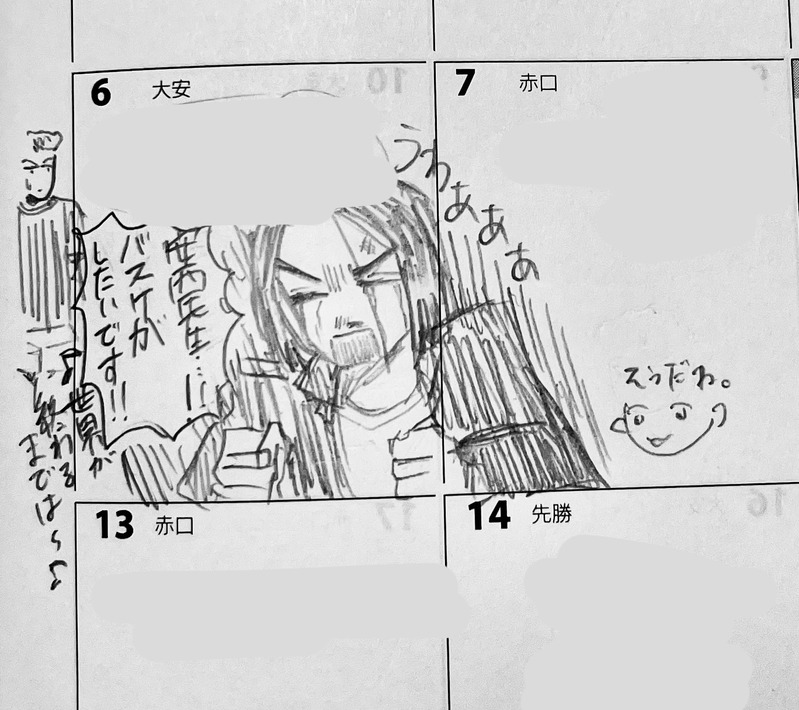 6 大安
7 赤口
うわあああ
安西先生…!!
バスケが
したいです!!
♪世界が
終わる
までは〜♪
えっだわ。
13 赤口
14 先勝